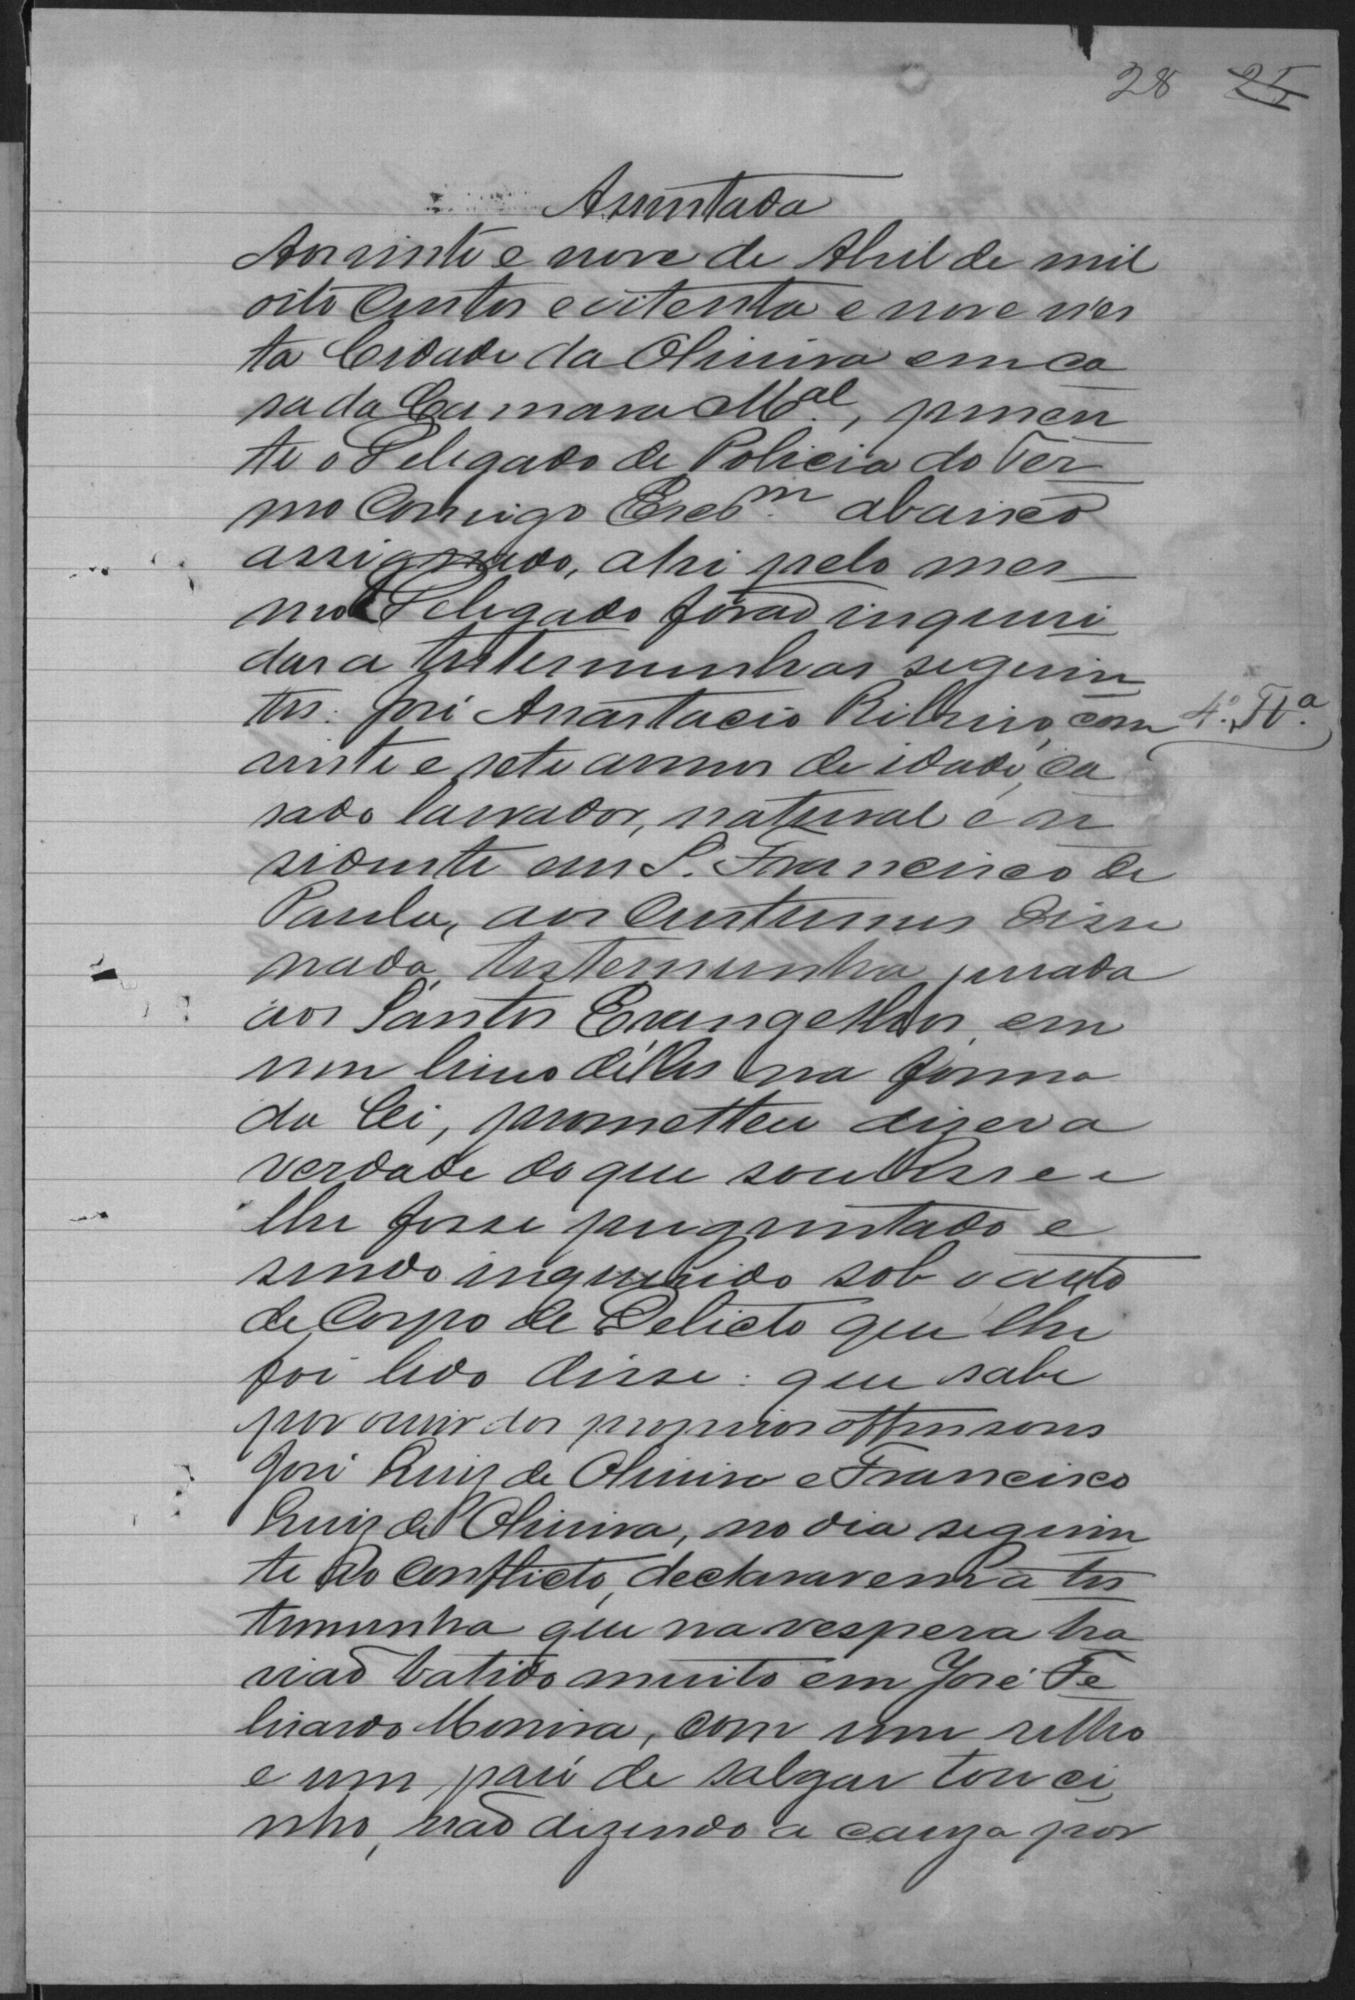 28 25
Assentada
Aos vinte e nove de Abril de mil
oito Centos e oitenta e nove n'es
ta Cidade da Oliveira em ca
sa da Camara Mal, presen
te o Delegado de Policia do Ter
mo Comigo Escam abaixo
assignado, ahi pelo mes
mo Delegado forão inqueri
das a testemunhas seguin
tes: José Anastacio Ribeiro, com 4ª Ta
vinte e sete annos de idade, ca
sado lavrador, natural e re
sidente em S. Francisco de
Paula, aos Custumes disse
nada, testemunha jurada
aos Santos Evangelhos, em
um livro d'elles na forma
da lei, prometteu diser a
verdade do que soubesse e
lhe fosse perguntado e
sendo inquerido sob o auto
de Corpo de Delicto que lhe
foi lido disse: que sabe
por ouvir dos proprios offensores
José Luiz de Oliveira e Francisco
Luiz de Oliveira, no dia seguin
te ao Conflicto, declararem a tes
temunha que na vespera ha
vião batido muito em José Fe
lisardo Moreira, com um relho
e um pau de salgar touci
nho, não dizendo a cauza por